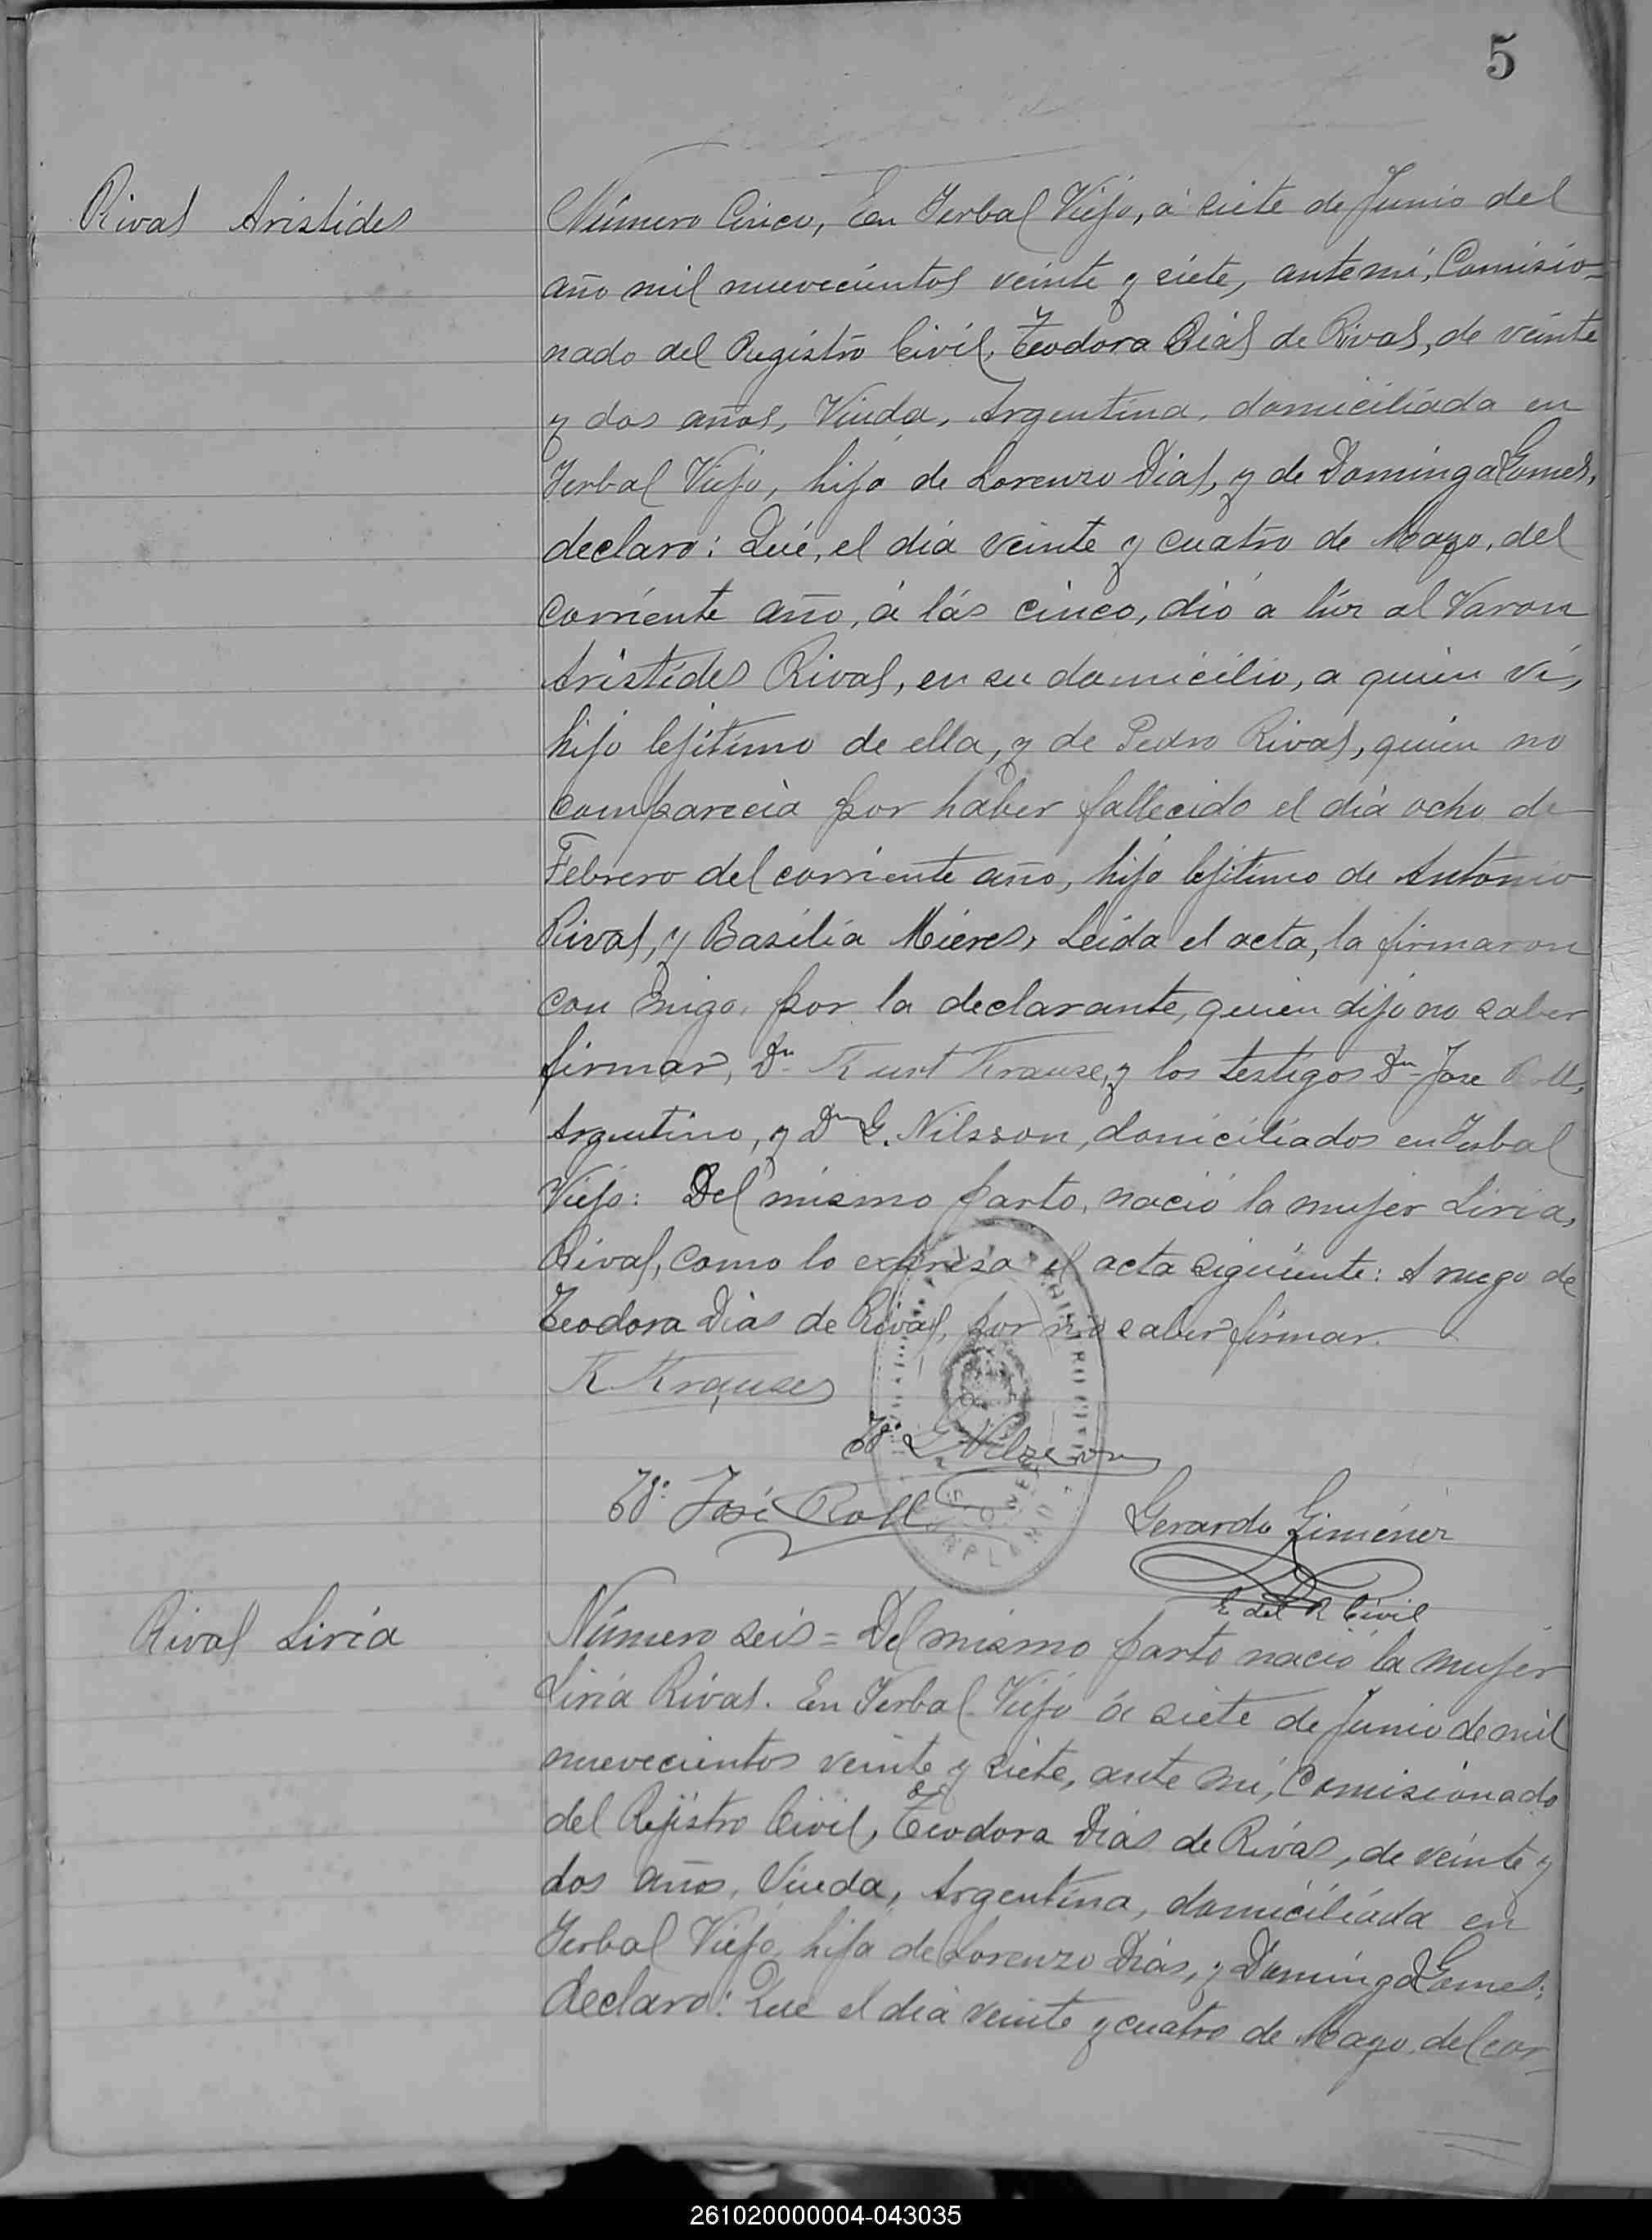 5
Rivas Aristides
Número Cinco, En Yerbal Viejo, á siete de Junio del
año mil nuevecientos veinte y siete, ante mí, Comisio=
nado del Registro Civil, Teodora Dias de Rivas, de veinte
y dos años, Viuda, Argentina, domiciliada en
Yerbal Viejo, hija de Lorenzo Dias, y de Dominga Gomes,
declaro: Qué, el día veinte y cuatro de Mayo, del
corriente año, á lás cinco, dió a lúz al Varon
Aristídes Rivas, en su domicilio, a quien ví,
hijo lejítimo de ella, y de Pedro Rivas, quien no
comparecia por haber fallecido el día ocho de
Febrero del corriente año, hijo lejitimo de Antonio
Rivas, y Basilia Mieres, Leida el acta, la firmaron
con migo, por la declarante, quien dijo no saber
firmar, Dn Kurt Krause, y los testigos Dn Jose Roll,
Argentino, y Dn G. Nilsson, domiciliados en Yerbal
Viejo: Del mismo parto, nació la mujer Liria,
Rivas, como lo expresa el acta siguiente: A ruego de
Teodora Dias de Rivas, por no saber firmar.
K Krause
To. G Nilsson
To. José Roll
Gerardo Giménez
E del R Civil
Rivas Liria
Número seis = Del mismo parto nació la mujer
Liria Rivas. En Yerbal Viejo á siete de Junio de mil
nuevecientos veinte y siete, ante mí, Comisionado
del Rejistro Civil, Teodora Dias de Rivas, de veinte y
dos años, Viuda, Argentina, domiciliada en
Yerbal Viejo, hija de Lorenzo Dias, y Dominga Gomes;
declaro: Que el día veinte y cuatro de Mayo, del cor=
261020000004-043035